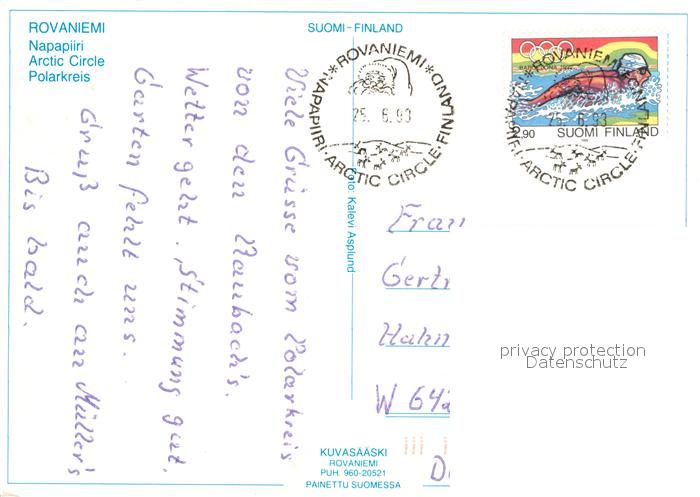 ROVANIEMI
Napapiiri
Arctic Circle
Polarkreis
SUOMI-FINLAND
ROVANIEMI
NAPAPIIRI · ARCTIC CIRCLE · FINLAND
25. 6. 93
BARCELONA 1992
2.90 SUOMI FINLAND
ROVANIEMI
NAPAPIIRI · ARCTIC CIRCLE · FINLAND
25. 6. 93
Viele Grüsse vom Polarkreis
von den Maubach's.
Wetter geht. Stimmung gut.
Garten fehlt uns.
Gruß auch an Müller's
Bis bald.
Foto: Kalevi Asplund
Frau
Gertr
Hahn
W 642
D
privacy protection
Datenschutz
KUVASÄÄSKI
ROVANIEMI
PUH. 960-20521
PAINETTU SUOMESSA